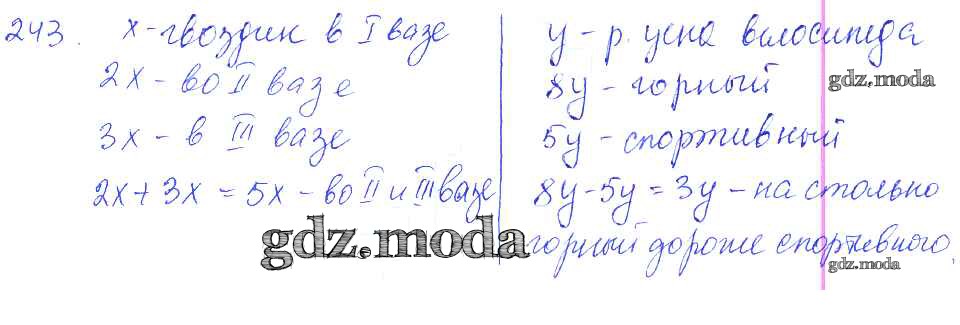 243. x - гвоздик в I вазе
2x - во II вазе
3x - в III вазе
2x + 3x = 5x - во II и III вазе
y - р. цена велосипеда
8y - горный
5y - спортивный
8y - 5y = 3y - на столько
горный дороже спортивного
gdz.moda
gdz.moda
gdz.moda